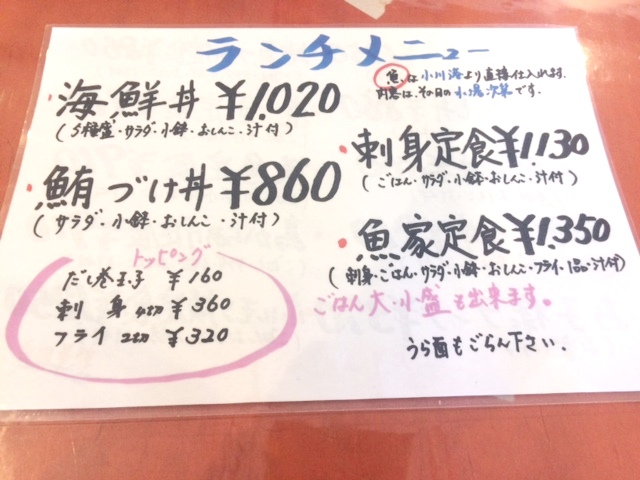 ランチメニュー
魚は小川港より直接仕入れます。
内容は、その日の水揚次第です。
海鮮丼 ¥1.020
(5種盛・サラダ・小鉢・おしんこ・汁付)
鮪づけ丼 ¥860
(サラダ・小鉢・おしんこ・汁付)
刺身定食 ¥1.130
(ごはん・サラダ・小鉢・おしんこ・汁付)
魚家定食 ¥1.350
(刺身・ごはん・サラダ・小鉢・おしんこ・フライ1品・汁付)
ごはん大・小盛も出来ます。
うら面もごらん下さい.
トッピング
だし巻玉子 ¥160
刺身 4切 ¥360
フライ 2切 ¥320